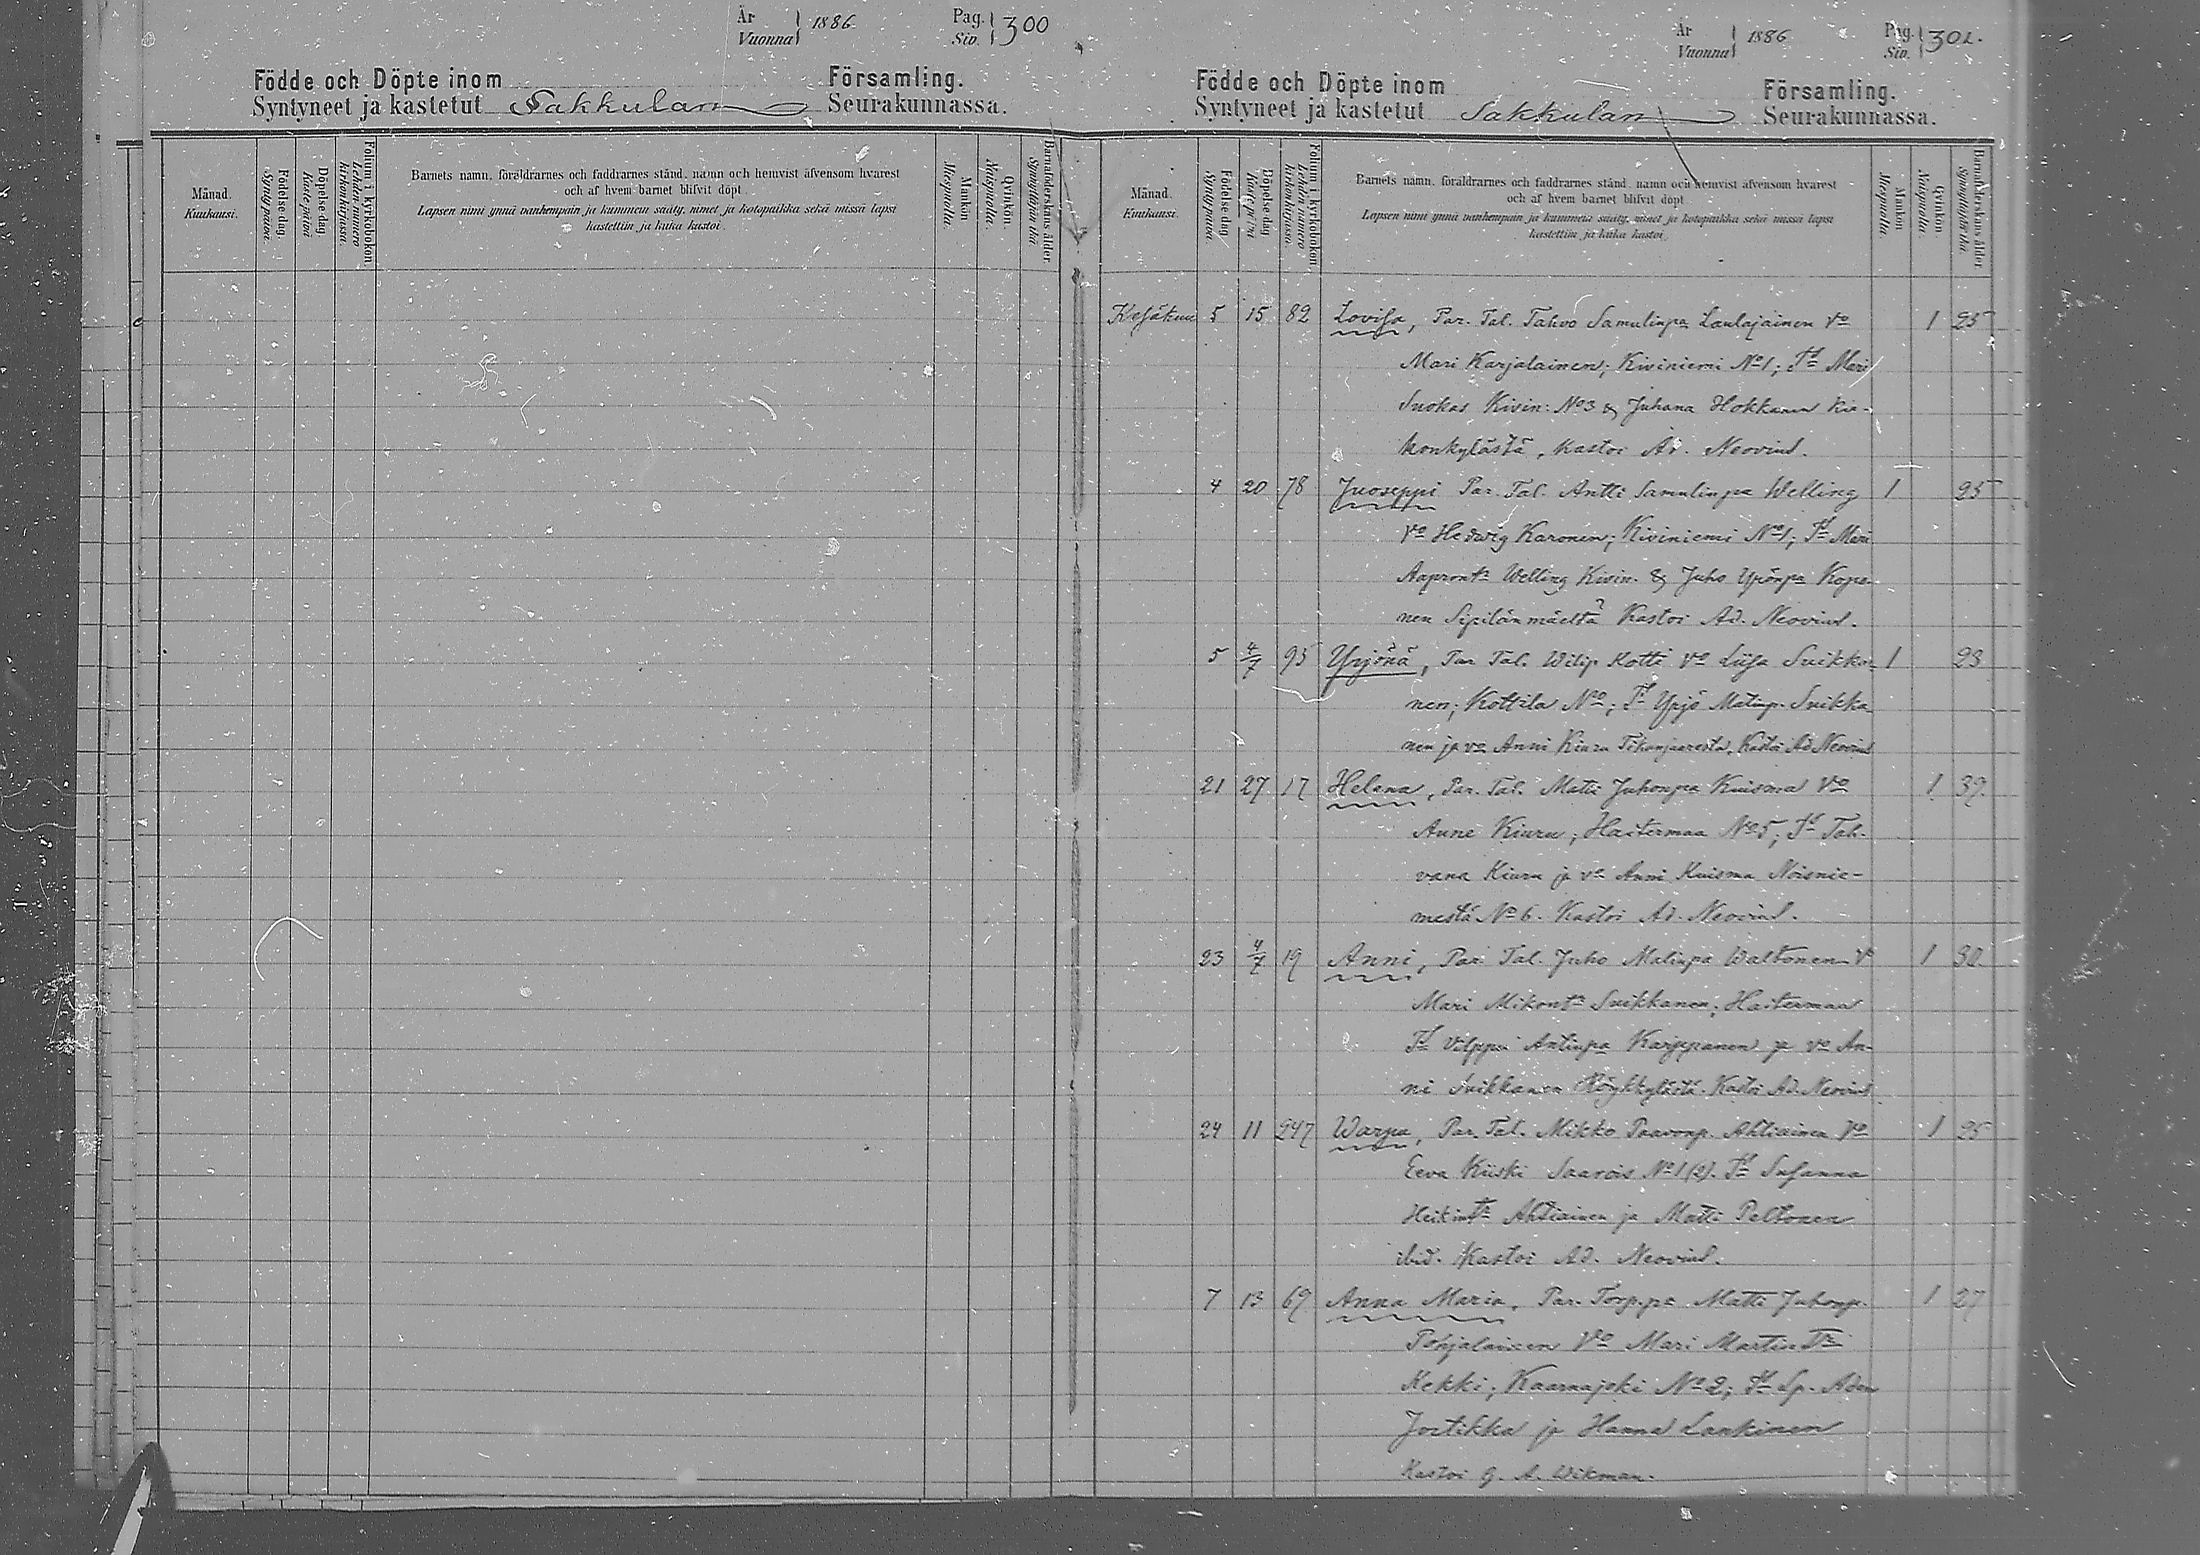 År
Vuonna 1886.
Pag.
Siv. 300
Födde och Döpte inom
Syntyneet ja kastetut Sakkulan
Församling.
Seurakunnassa.
Månad.
Kuukausi.
Födelse dag.
Syntypäivä.
Döpelse dag.
Kaste päivä
Folium i kyrkoboken
Lehden numero
kirkonkirjassa.
Barnets namn, föräldrarnes och faddrarnes stånd, namn och hemvist äfvensom hvarest
och af hvem barnet blifvit döpt.
Lapsen nimi ynnä vanhempain ja kummein sääty, nimet ja kotopaikka sekä missä lapsi
kastettiin ja kuka kastoi.
Mankön
Miespuolia.
Qvinkön.
Naispuolia.
Barnaföderskans ålder
Synnyttäjän ikä.
År
Vuonna 1886
Pag.
Siv. 301.
Födde och Döpte inom
Syntyneet ja kastetut Sakkulan
Församling.
Seurakunnassa.
Månad.
Kuukausi.
Födelse dag.
Syntypäivä.
Döpelse dag
Kaste päivä
Folium i kyrkoboken
Lehden numero
kirkonkirjassa.
Barnets namn, föräldrarnes och faddrarnes stånd, namn och hemvist äfvensom hvarest
och af hvem barnet blifvit döpt
Lapsen nimi ynnä vanhempain ja kummein sääty, nimet ja kotopaikka sekä missä lapsi
kastettiin ja kuka kastoi.
Mankön
Miespuolia.
Qvinkön
Naispuolia.
Barnaföderskans ålder
Synnyttäjän ikä.
Kesäkuu 5 15 82 Lovisa, Par. Tal. Tahvo Samulinpa Laulajainen Vo 1 25
Mari Karjalainen; Kiviniemi No 1; Td Mari
Suokas Kivin: No 3 & Juhana Hokkanen Kir-
konkylästä, Kastoi Ad. Neovius.
4 20 78 Juoseppi Par. Tal. Antti Samulinpa Welling 1 25
Vo Hedwig Karonen; Kiviniemi No 1; Td Mari
Aapronta Welling Kivin. & Juho Yrönpa Kopo-
nen Sipilänmäeltä? Kastoi Ad. Neovius.
5 4/7 95 Yrjänä, Par Tal. Wilip Kotti Vo Liisa Suikka- 1 23
nen; Kottila No; Td Yrjö Matinp. Suikka
nen ja vo Anni Kiuru Kastoi Ad Neovius
21 27 17 Helena, Par. Tal. Matti Juhonpa Kuisma Vo 1 39.
Anne Kiuru; Haitermaa No 5; Td Tah-
vana Kiuru ja vo Anni Kuisma Noisnie-
mestä No 6. Kastoi Ad. Neovius.
23 4/7 19 Anni, Par Tal. Juho Matinpa Waltonen V 1 30.
Mari Mikonta Suikkanen; Haitermaa
Td Vilppu Antinpa Karppanen ja vo An-
ni Suikkanen Röykkylästä. Kastoi Ad. Neovius
24 11 247 Warpa, Par. Tal. Mikko Paavonp. Ahtiainen Vo 1 25
Eeva Kiiski Saarois No 1 (2). Td Susanna
Heikinta Ahtiainen ja Matti Peltonen
ibid. Kastoi Ad. Neovius.
7 13 69 Anna Maria, Par. Torp.pa Matti Juhonp. 1 27
Pohjalainen Vo Mari Martinta
Kekki; Kaarnajoki No 2; Td Sp. Adam
Jortikka ja Hanna Lankinen
Kastoi G. A. Wikman.